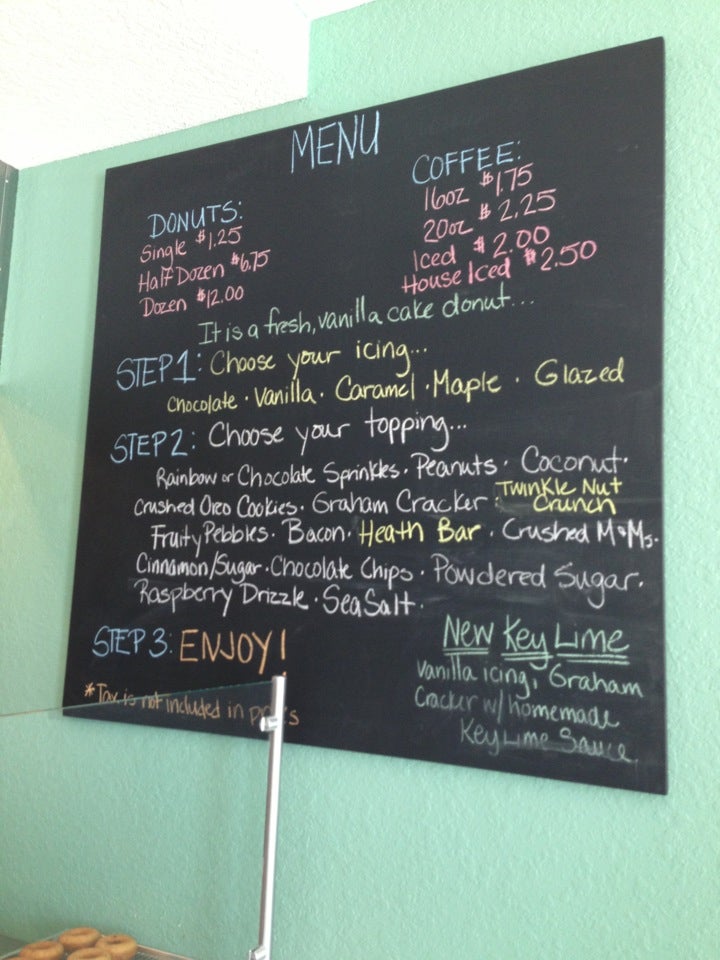 MENU
DONUTS:
Single $1.25
Half Dozen $6.75
Dozen $12.00
COFFEE:
16oz $1.75
20oz $2.25
Iced $2.00
House Iced $2.50
It is a fresh, vanilla cake donut...
STEP 1: Choose your icing...
Chocolate · Vanilla · Caramel · Maple · Glazed
STEP 2: Choose your topping...
Rainbow or Chocolate Sprinkles · Peanuts · Coconut ·
Crushed Oreo Cookies · Graham Cracker · Twinkle Nut Crunch
Fruity Pebbles · Bacon · Heath Bar · Crushed M&Ms ·
Cinnamon/Sugar · Chocolate Chips · Powdered Sugar ·
Raspberry Drizzle · Sea Salt ·
STEP 3: ENJOY!
*Tax is not included in prices
New Key Lime
Vanilla icing, Graham
Cracker w/ homemade
Key Lime Sauce